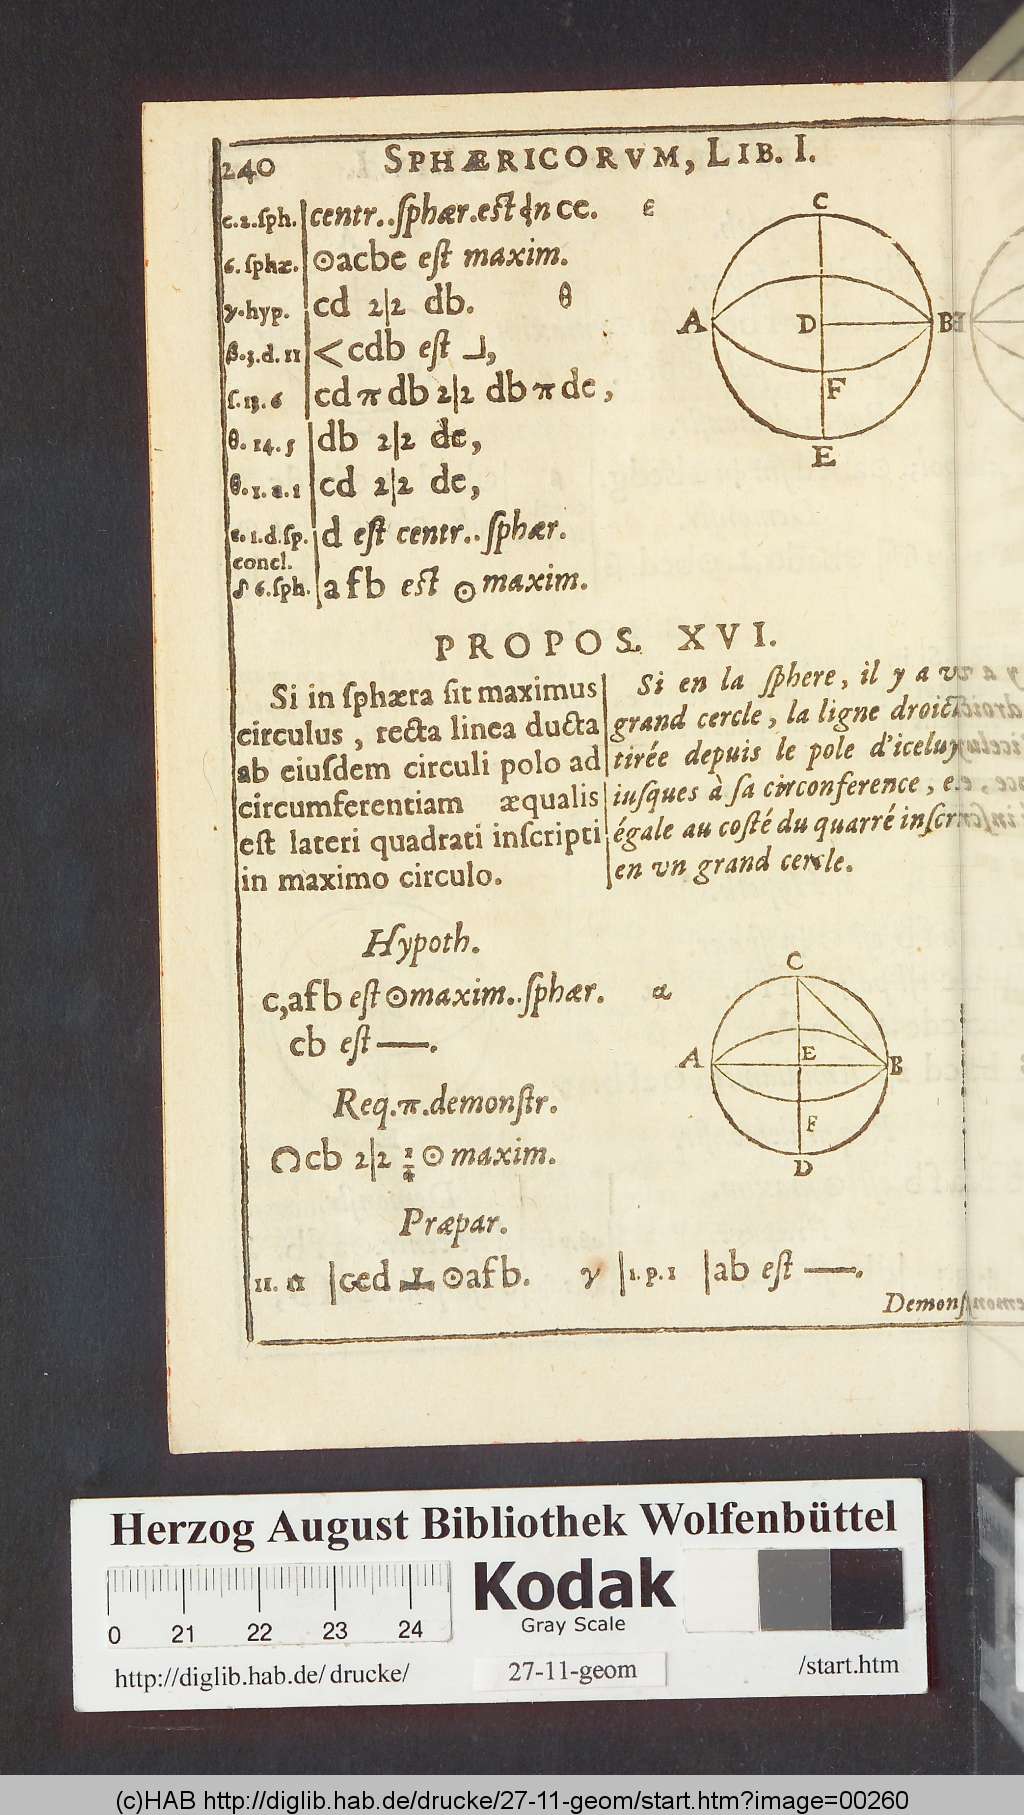 240 SPHÆRICORVM, LIB. I.
c.2.ſph. | centr..ſphær.eſt in ce. ε
6. ſphæ. | ⊙acbe eſt maxim.
γ.hyp. | cd 2|2 db. θ
β.3.d.11 | <cdb eſt ⅃,
ſ.13.6 | cd π db 2|2 db π de,
θ.14.5 | db 2|2 de,
θ.1.a.1 | cd 2|2 de,
ε.1.d.ſp. | d eſt centr..ſphær.
concl.
δ 6.ſph. | afb eſt ⊙ maxim.
C
A D B
F
E
PROPOS. XVI.
Si in ſphæra ſit maximus
circulus, recta linea ducta
ab eiuſdem circuli polo ad
circumferentiam æqualis
eſt lateri quadrati inſcripti
in maximo circulo.
Si en la ſphere, il y a vn
grand cercle, la ligne droicte
tirée depuis le pole d'iceluy
iuſques à ſa circonference, e
égale au coſté du quarré inſcr
en vn grand cercle.
Hypoth.
c,afb eſt ⊙maxim..ſphær. α
cb eſt —.
Req.π.demonſtr.
∩cb 2|2 ¼ ⊙ maxim.
Præpar.
11. α | ced ⊥ ⊙afb. γ | 1.p.1 | ab eſt —.
Demonſ
C
A E B
F
D
Herzog August Bibliothek Wolfenbüttel
0 21 22 23 24
Kodak
Gray Scale
http://diglib.hab.de/drucke/ 27-11-geom /start.htm
(c)HAB http://diglib.hab.de/drucke/27-11-geom/start.htm?image=00260